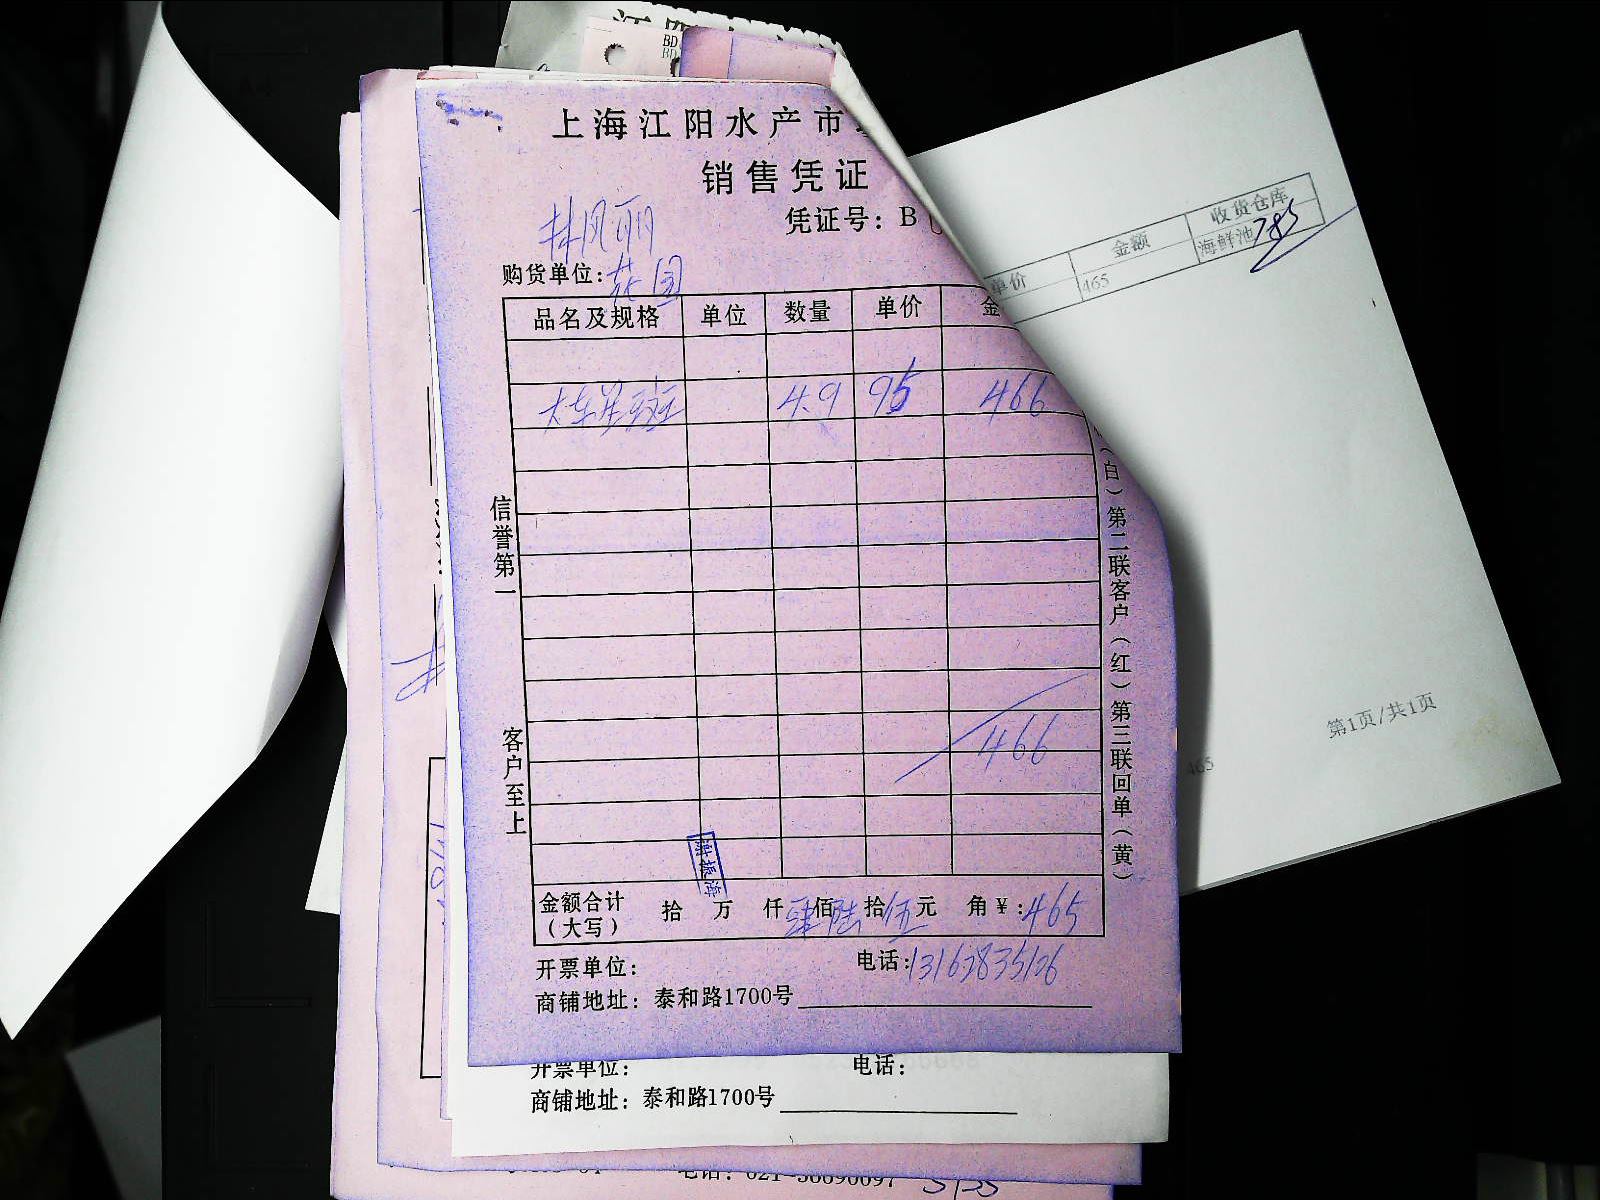 上海江阳水产市
销售凭证
凭证号：B
林凤丽
购货单位：花园
品名及规格 单位 数量 单价 金
大东星斑 4.9 95 466
466
金额合计（大写） 拾 万 仟 肆佰陆拾伍元 角￥：465
开票单位： 电话：13162835126
商铺地址：泰和路1700号
信誉第一
客户至上
（白）第二联客户（红）第三联回单（黄）
开票单位： 电话：
商铺地址：泰和路1700号
单价 金额 收货仓库
465 海鲜池
465
第1页/共1页